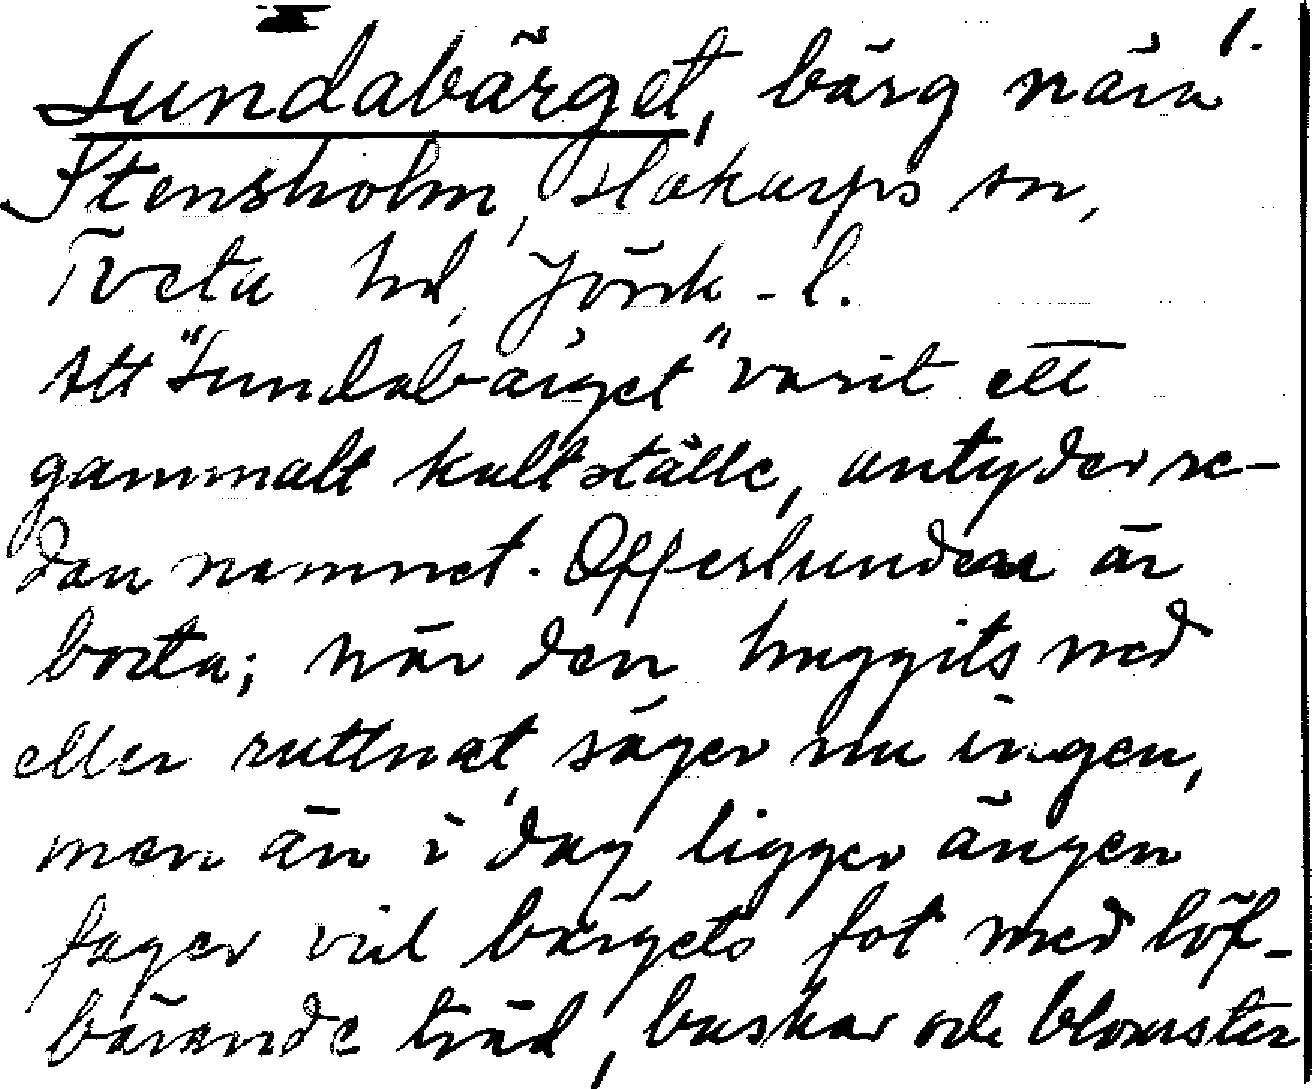 1.
Lundabärget, bärg nära
Stensholm, Hakarps sn,
Tveta hd, Jönk.-l.
Att "Lundabärget" varit ett
gammalt kultställe, antyder re-
dan namnet. Offerlunden är
borta; när den huggits ned
eller ruttnat, säger nu ingen,
men än i dag ligger ängen
fager vid bärgets fot med löf-
bärande träd, buskar och blomster